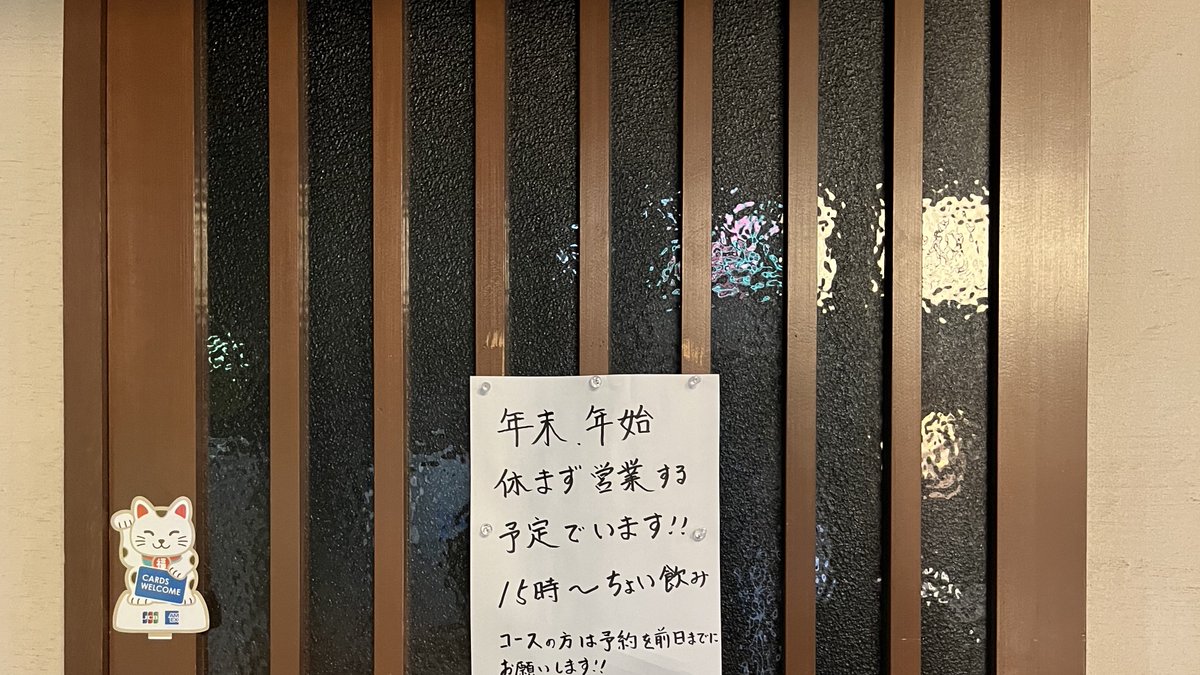 年末、年始
休まず営業する
予定でいます!!
15時〜ちょい飲み
コースの方は予約を前日までに
お願いします!!
福
CARDS
WELCOME
JCB
AM
EX